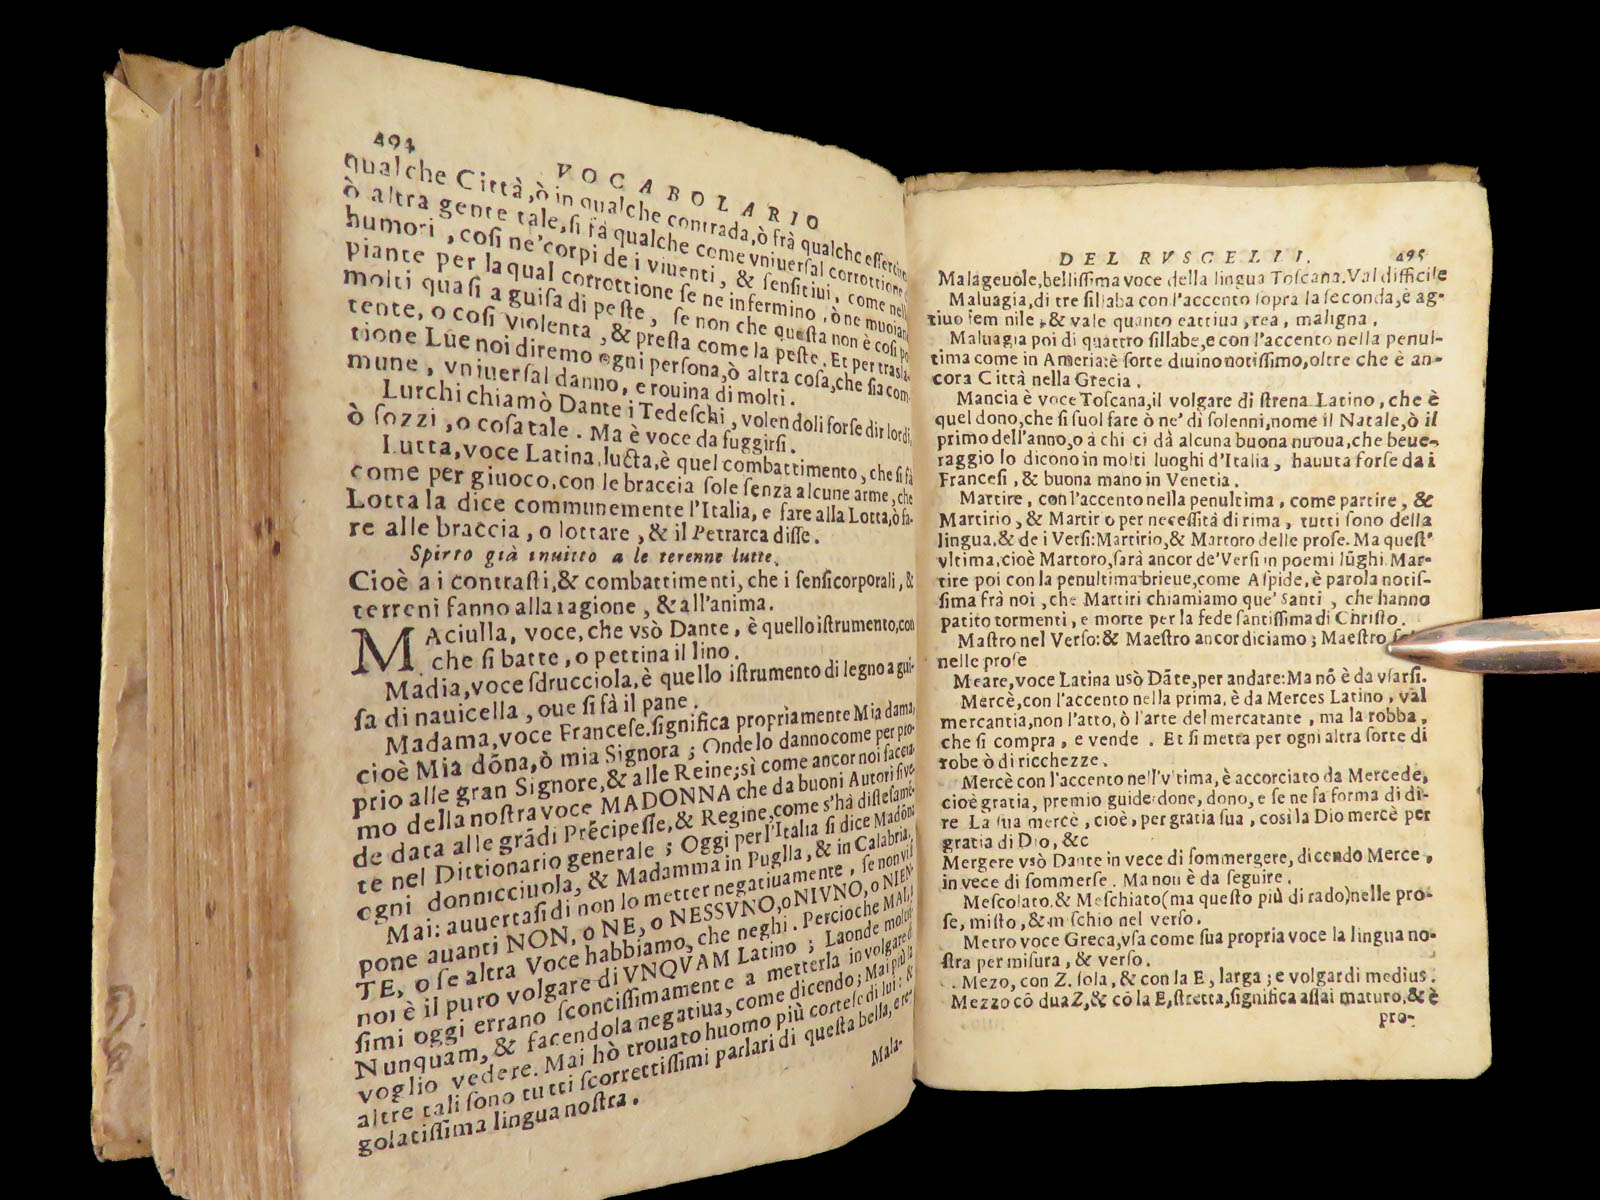 494
VOCABOLARIO
qualche Città, ò in qualche contrada, ò frà qualche
ò altra gente tale, ſi fà qualche come vniuerſal corrottione
humori, coſi ne'corpi de i viuenti, & ſenſitiui, come nelle
piante per laqual corrottione ſe ne infermino, ò ne muoiano
molti quaſi a guiſa di peſte, ſe non che queſta non è coſi po
tente, o coſi violenta, & preſta come la peſte. Et per trasla-
tione Lue noi diremo ogni perſona, ò altra coſa, che ſia com
mune, vniuerſal danno, e rouina di molti.
Lurchi chiamò Dante i Tedeſchi, volendoli forſe dir lordi,
ò ſozzi, o coſa tale. Ma è voce da fuggirſi.
Lutta, voce Latina, lucta, è quel combattimento, che ſi fà
come per giuoco, con le braccia ſole ſenza alcune arme, che
Lotta la dice communemente l'Italia, e fare alla Lotta, ò fa-
re alle braccia, o lottare, & il Petrarca diſſe.
Spirto già inuitto a le terenne lutte.
Cioè a i contraſti, & combattimenti, che i ſenſi corporali, &
terreni fanno alla ragione, & all'anima.
MAciulla, voce, che vsò Dante, è quello iſtrumento, con
che ſi batte, o pettina il lino.
Madia, voce ſdrucciola, è quello iſtrumento di legno a gui-
ſa di nauicella, oue ſi fà il pane.
Madama, voce Franceſe. ſignifica propriamente Mia dama,
cioè Mia dõna, ò mia Signora; Onde lo danno come per pro-
prio alle gran Signore, & alle Reine; sì come ancor noi faceua
mo della noſtra voce MADONNA che da buoni Autori ſi ve-
de data alle grãdi Prẽcipeſſe, & Regine, come s'hà diſteſamẽ-
te nel Dittionario generale; Oggi per l'Italia ſi dice Madõna
ogni donnicciuola, & Madamma in Puglia, & in Calabria.
Mai: auuertaſi di non lo metter negatiuamente, ſe non vi ſi
pone auanti NON, o NE, o NESSVNO, o NIVNO, o NIEN-
TE, o ſe altra Voce habbiamo, che neghi. Percioche MAI,
noi è il puro volgare di VNQVAM Latino; Laonde
ſimi oggi errano ſconciſſimamente a metterla in volgare di
Nunquam, & facendola negatiua, come dicendo; Mai più la
voglio vedere. Mai hò trouato huomo più corteſe di lui: &
altre tali ſono tutti ſcorrettiſſimi parlari di queſta bella, e re-
golatiſſima lingua noſtra.
Mala-
DEL RVSCELLI.
495
Malageuole, belliſſima voce della lingua Toſcana. Val difficile
Maluagia, di tre ſillaba con l'accento ſopra la ſeconda, è ag-
tiuo fem nile, & vale quanto cattiua, rea, maligna.
Maluagia poi di quattro ſillabe, e con l'accento nella penul-
tima come in Ameria: è ſorte di uino notiſſimo, oltre che è an-
cora Città nella Grecia.
Mancia è voce Toſcana, il volgare di ſtrena Latino, che è
quel dono, che ſi ſuol fare ò ne' di ſolenni, nome il Natale, ò il
primo dell'anno, o à chi ci dà alcuna buona nuoua, che beue-
raggio lo dicono in molti luoghi d'Italia, hauuta forſe da i
Franceſi, & buona mano in Venetia.
Martire, con l'accento nella penultima, come partire, &
Martirio, & Martiro per neceſſità di rima, tutti ſono della
lingua, & de i Verſi: Martirio, & Martoro delle proſe. Ma queſt'
vltima, cioè Martoro, ſarà ancor de' Verſi in poemi lũghi. Mar-
tire poi con la penultima brieue, come Aſpide, è parola notiſ-
ſima frà noi, che Martiri chiamiamo que' Santi, che hanno
patito tormenti, e morte per la fede ſantiſſima di Chriſto.
Maſtro nel Verſo: & Maeſtro ancor diciamo; Maeſtro
nelle proſe
Meare, voce Latina usò Dãte, per andare: Ma nõ è da vſarſi.
Mercè, con l'accento nella prima, è da Merces Latino, val
mercantia, non l'atto, ò l'arte del mercatante, ma la robba,
che ſi compra, e vende. Et ſi metta per ogni altra ſorte di
robe ò di ricchezze.
Mercè con l'accento nell'vltima, è accorciato da Mercede,
cioè gratia, premio guiderdone, dono, e ſe ne fa forma di di-
re La ſua mercè, cioè, per gratia ſua, coſi la Dio mercè per
gratia di Dio, &c
Mergere vsò Dante in vece di ſommergere, dicendo Merce,
in vece di ſommerſe. Ma non è da ſeguire.
Meſcolato, & Meſchiato (ma queſto più di rado) nelle pro-
ſe, miſto, & miſchio nel verſo.
Metro voce Greca, vſa come ſua propria voce la lingua no-
ſtra per miſura, & verſo.
Mezo, con Z. ſola, & con la E, larga; e volgar di medius.
Mezzo cõ dua Z, & cõ la E, ſtretta, ſignifica aſſai maturo, & è
pro-